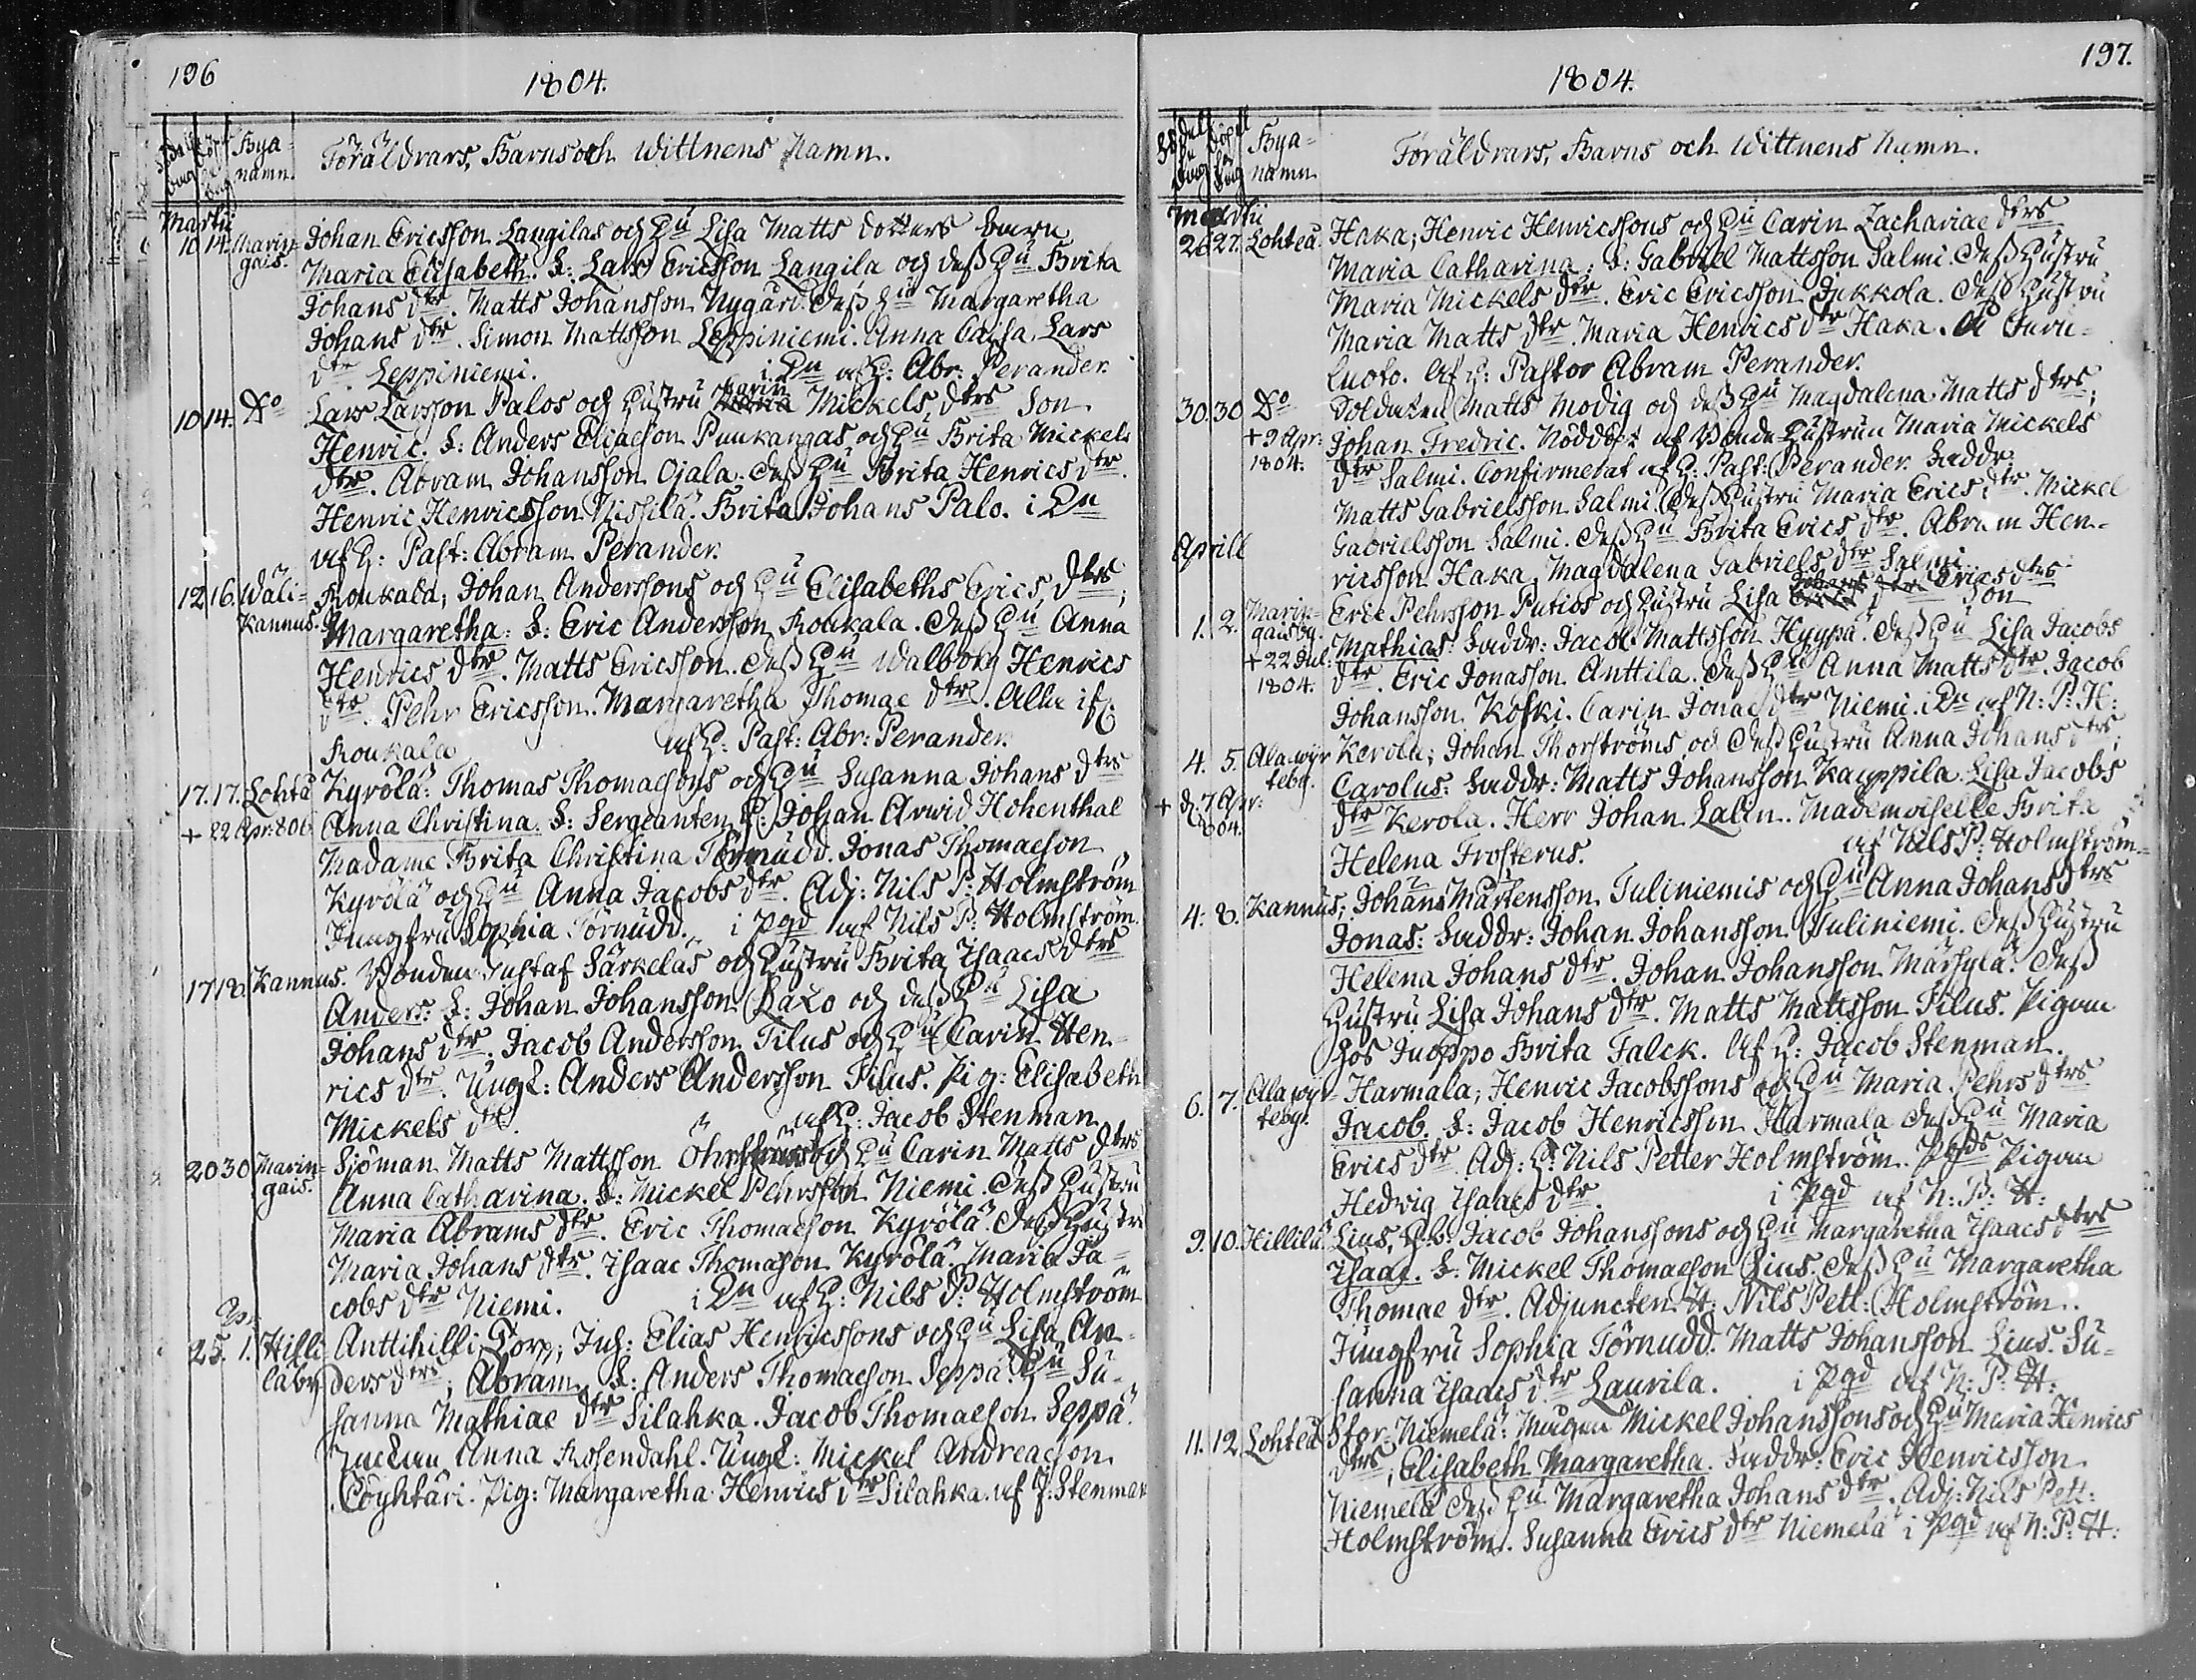 196
1804.
Födelse dag Döpelse dag Bya-namn. Föräldrars, Barns och Wittnens Namn.
Martii
10 14. Marin- Johan Ericsson Langilas och Hu Lisa Matts dotters barn
gais. Maria Elisabeth. S: Lars Ericsson Langila och dess Hu Brita
Johans dtr. Matts Johansson Nygård. dess Hu Margaretha
Johans dtr. Simon Mattsson Leppiniemi. Anna Caisa Lars
dtr Leppiniemi. i Dn af H: Abr: Perander.
10 14. Do Lars Larsson Palos och Hustru Carin Mickels dtrs Son
Henric. S: Anders Eliaeson Punkangas och Hu Brita Mickels
dtr. Abram Johansson Ojala. dess Hu Brita Henrics dtr.
Henric Henricsson Nissilä. Brita Johans Palo. i Dn
af H: Past: Abram Perander.
12 16. Wäli- Roukala; Johan Anderssons och Hu Elisabeths Erics dtrs;
Kannus. Margaretha: S: Eric Andersson Roukala. dess Hu Anna
Henrics dtr. Matts Ericsson. dess Hu Walborg Henrics
dtr. Pehr Ericsson. Margaretha Thomae dtr. Alla ifr.
Roukala af H: Past: Abr: Perander.
17. 17. Lohtå Kyrölä: Thomas Thomaesons och Hu Susanna Johans dtrs
+ 22 Apr: 806 Anna Christina. S: Sergeanten H: Johan Arwid Hohenthal
Madame Brita Christina Törnudd. Jonas Thomaeson
Kyrölä och Hu Anna Jacobs dtr. Adj: Nils P: Holmström
Jungfru Sophia Törnudd. i Pgd af Nils P: Holmström.
17 18. Kannus. Bonden Gustaf Särkeläs och Hustru Brita Isaacs dtrs
Anders: S: Johan Johansson Salo och dess Hu Lisa
Johans dtr. Jacob Andersson Tilus och Hu Carin Hen-
rics dtr. Ungk: Anders Andersson Tilus. Pig: Elisabeth
Mickels dtr. af H: Jacob Stenman
20 30 Marin- Sjöman Matts Mattsson och Hu Carin Matts dtrs
gais. Anna Catharina. S: Mickel Pehrsson Niemi. dess Hustru
Maria Abrams dtr. Eric Thomaeson Kyrölä. dess Hustr
Maria Johans dtr. Isaac Thomaeson Kyrölä. Maria Ja-
cobs dtr Niemi. i Dn af H: Nils P: Holmström
25. 1. Hilli Anttihilli Torp; Inh: Elias Henricssons och Hu Lisa An-
laby ders dtrs; Abram. S: Anders Thomaeson Seppä. Hu Su-
sanna Mathiae dtr Silahka. Jacob Thomaeson Seppä.
Anna Rosendahl. Ungk: Mickel Andreaeson
Pöyhtäri. Pig: Margaretha Henrics dtr Silahka. af J. Stenman
197.
1804.
Födelse dag Döpelse dag Bya-namn Föräldrars, Barns och Wittnens Namn.
Martii
26 27. Lohteå. Haka; Henric Henricssons och Hu Carin Zachariae dtrs
Maria Catharina: S: Gabriel Mattsson Salmi. dess Hustru
Maria Mickels dtr. Eric Ericsson Jukkola. dess Hustru
Maria Matts dtr. Maria Henrics dtr Haka.
luoto. af H: Pastor Abram Perander.
30. 30 Do Soldaten Matts Modig och dess Hu Magdalena Matts dtrs;
+ 9 Apr: Johan Fredric. Nöddöpt af Bonde Hustrun Maria Mickels
1804. dtr Salmi. Confirmerat af H: Past: Perander. Faddr:
Matts Gabrielsson Salmi. dess Hustru Maria Erics dtr. Mickel
Gabrielsson Salmi. dess Hu Brita Erics dtr. Abram Hen-
Aprill ricsson Haka. Magdalena Gabriels dtr Salmi.
1. 2. Marin- Eric Pehrsson Putios och Hustru Lisa Erics dtrs Son
gaisby. Mathias. Faddr: Jacob Mattsson Hyypä. dess Hu Lisa Jacobs
+ 22 Jul: dtr. Eric Jonasson Anttila. dess Hu Anna Matts dtr. Jacob
1804. Johansson Koski. Carin Jonae dtr Niemi. i Dn af N: P: H:
4. 5. Alawijr Kerola; Johan Thorströms och dess Hustru Anna Johans dtrs;
tebg. Carolus: Faddr: Matts Johansson Kauppila. Lisa Jacobs
+ d. 7 Apr: dtr Kerola. Herr Johan Lalin. Mademoiselle Brita
804. Helena Frosterus. af Nils P: Holmström
4: 8. Kannus; Johan Mårtensson Juliniemis och Hu Anna Johans dtrs
Jonas: Faddr: Johan Johansson Juliniemi. dess Hustru
Helena Johans dtr. Johan Johansson Märsylä. dess
Hustru Lisa Johans dtr. Matts Mattsson Tilus. Pigan
hos Juoppo Brita Falck. af H: Jacob Stenman.
6. 7. Alawijr- Harmala; Henric Jacobssons och Hu Maria Pehrs dtrs
tebg. Jacob. S: Jacob Henricsson Harmala dess Hu Maria
Erics dtr. Adj: H: Nils Petter Holmström. Pgds Pigan
Hedwig Isaacs dtr. i Pgd af N: P: H:
9. 10. Hillilä Lius, Jacob Johanssons och Hu Margaretha Isaacs dtrs
Isaac. S: Mickel Thomaeson Lius. dess Hu Margaretha
Thomae dtr. Adjuncten H: Nils Pett: Holmström.
Jungfru Sophia Törnudd. Matts Johansson Lius. Su-
sanna Isaacs dtr Laurila. i Pgd af N: P: H:
11. 12 Lohteå Stor-Niemelä: Mågen Mickel Johanssons och Hu Maria Henrics
dtrs; Elisabeth Margaretha. Faddr: Eric Henricsson
Niemelä dess Hu Margaretha Johans dtr. Adj: Nils Pett:
Holmström. Susanna Erics dtr Niemelä i Pgd af N: P: H: